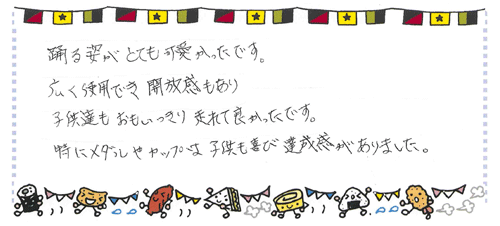 踊る姿がとても可愛かったです。
広く使用でき開放感もあり
子供達もおもいっきり走れて良かったです。
特にメダルやカップは子供も喜び達成感がありました。